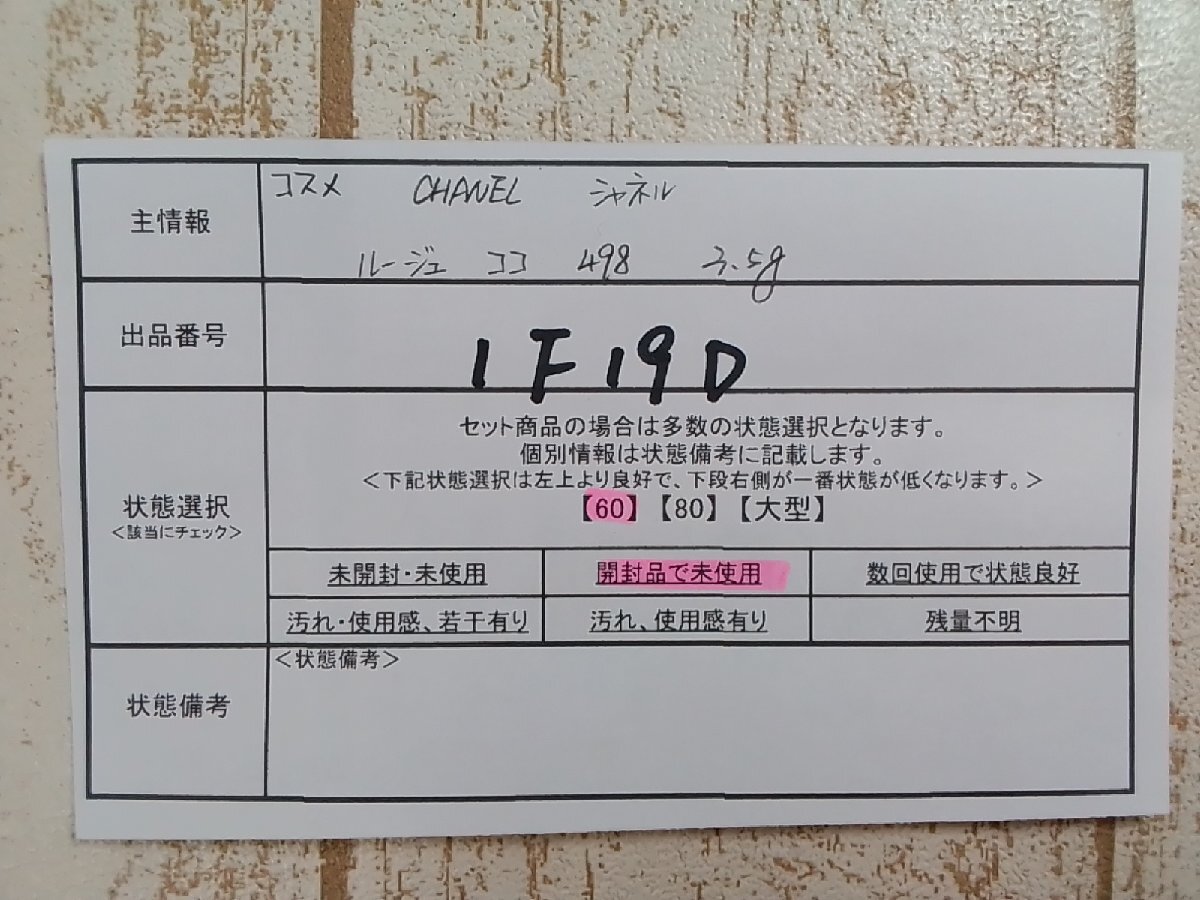 主情報
コスメ CHANEL シャネル
ルージュ ココ 498 3.5g
出品番号
1F19D
状態選択
<該当にチェック>
セット商品の場合は多数の状態選択となります。
個別情報は状態備考に記載します。
<下記状態選択は左上より良好で、下段右側が一番状態が低くなります。>
【60】【80】【大型】
未開封・未使用 開封品で未使用 数回使用で状態良好
汚れ・使用感、若干有り 汚れ、使用感有り 残量不明
状態備考
<状態備考>